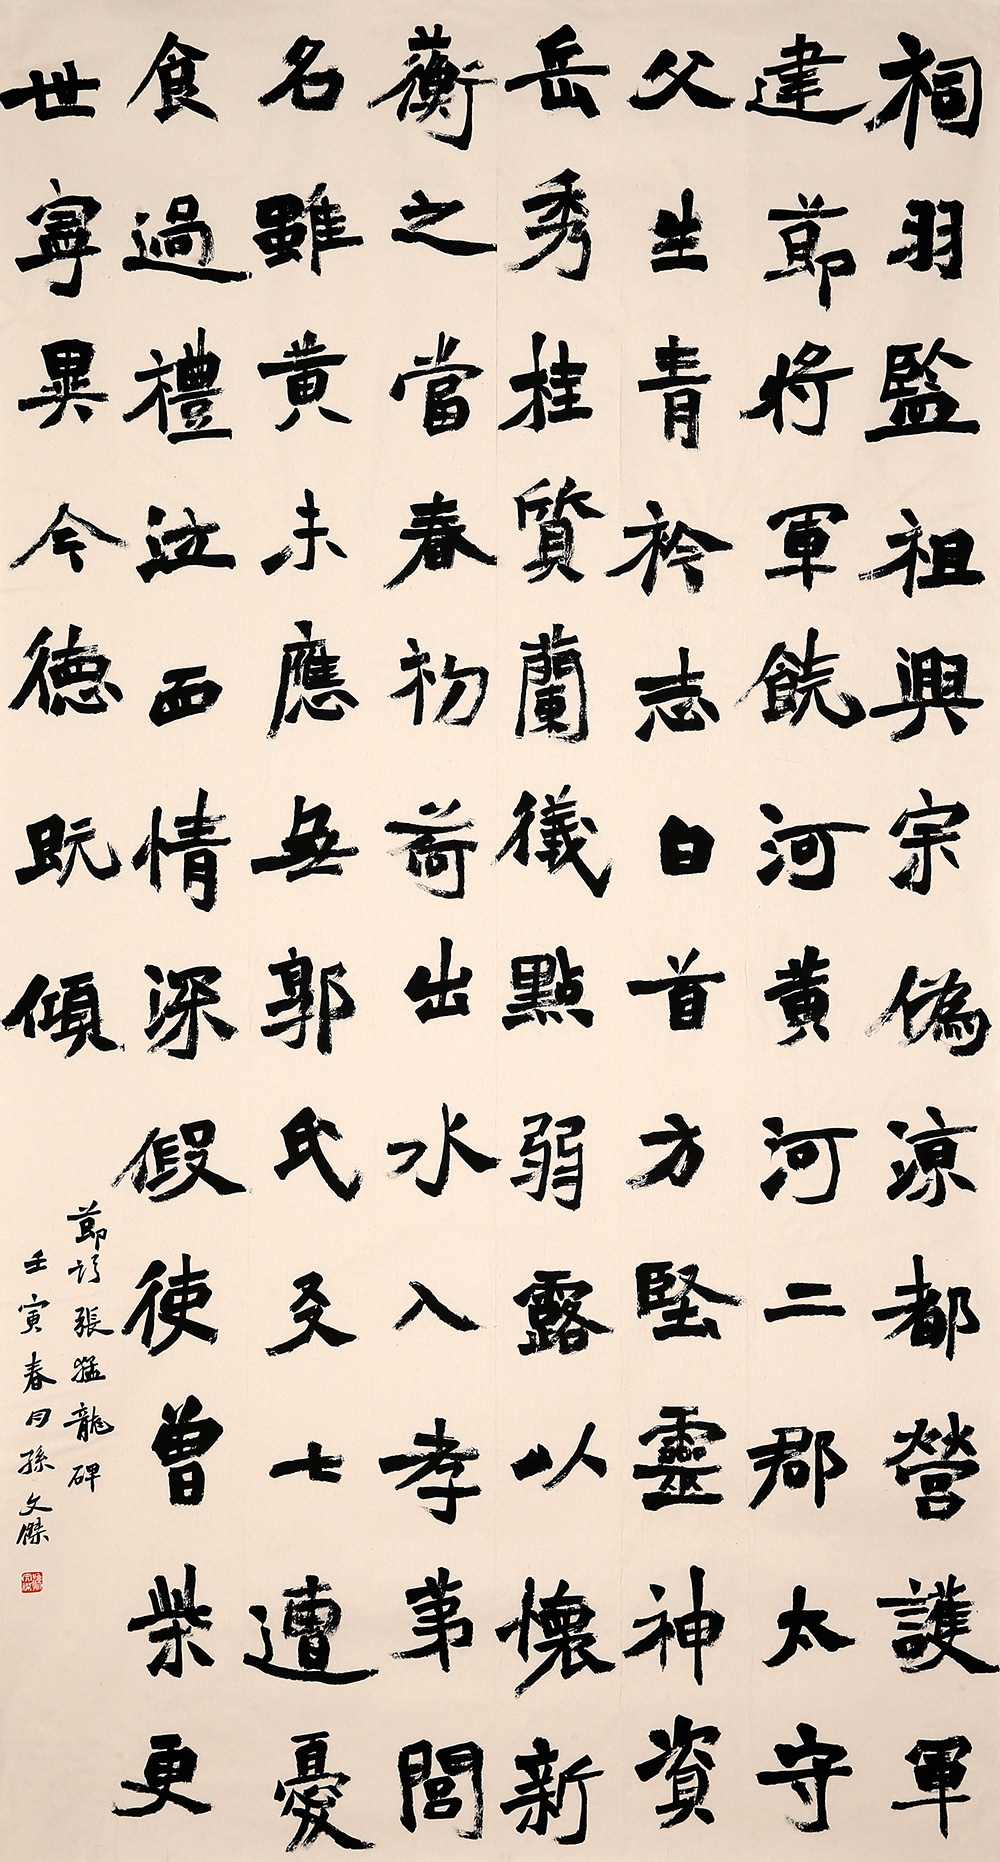 祠羽監祖興宗偽涼都營護軍
建節將軍饒河黄河二郡太守
父生青衿志白首方堅靈神資
岳秀桂質蘭儀點弱露以懷新
蘅之當春初荷出水入孝弟閭
名雖黄未應無郭氏友七遭憂
食過禮泣血情深假使曾柴更
世寧異今德既傾
節張猛龍碑
壬寅春月孫文傑